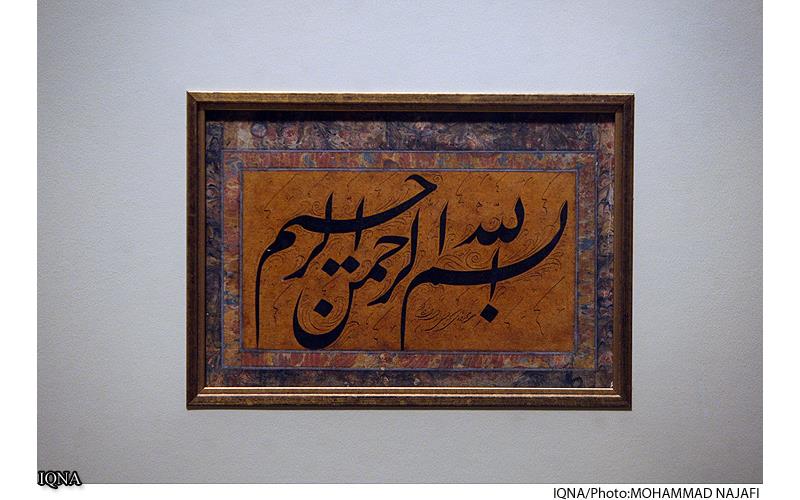 بسم الله الرحمن الرحیم
IQNA
IQNA/Photo:MOHAMMAD NAJAFI